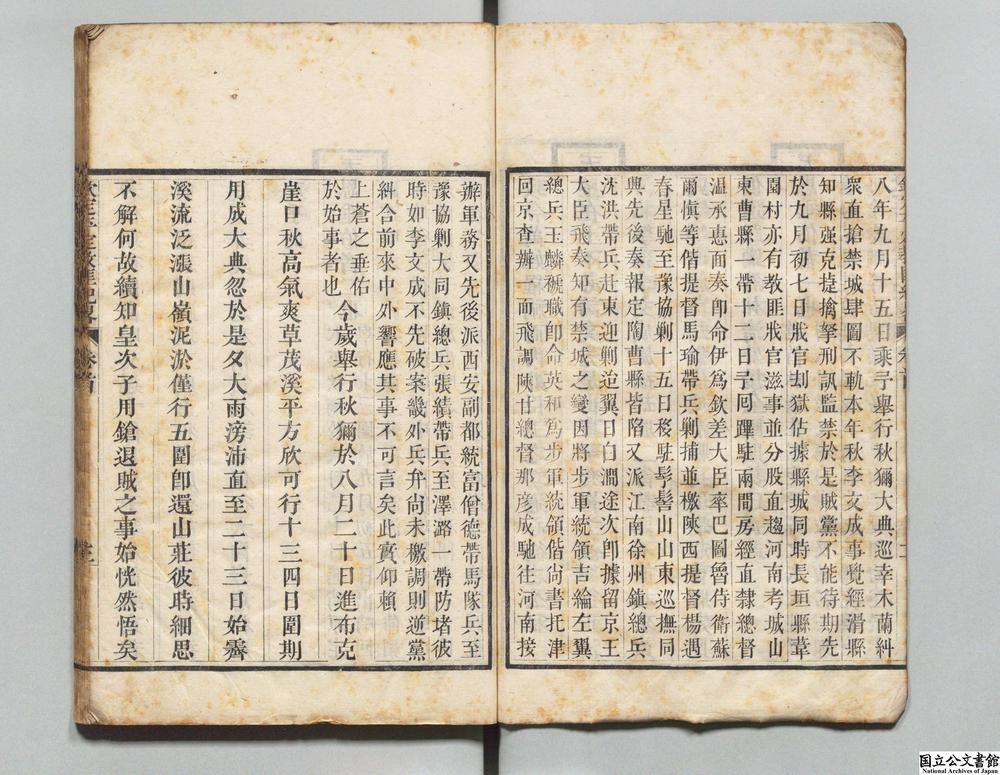 八年九月十五日乘予舉行秋獮大典巡幸木蘭糾
衆直搶禁城肆圖不軌本年秋李文成事覺經滑縣
知縣强克捷擒拏刑訊監禁於是賊黨不能待期先
於九月初七日戕官刧獄佔據縣城同時長垣縣葦
園村亦有教匪戕官滋事並分股直趨河南考城山
東曹縣一帶十二日予囘蹕駐兩間房經直隸總督
溫承惠面奏卽命伊爲欽差大臣率巴圖魯侍衛蘇
爾愼等偕提督馬瑜帶兵剿捕並檄陝西提督楊遇
春星馳至豫協剿十五日移駐髽髻山山東巡撫同
興先後奏報定陶曹縣皆陷又派江南徐州鎭總兵
沈洪帶兵赴東迎剿迨翼日白澗途次卽據留京王
大臣飛奏知有禁城之變因將步軍統領吉綸左翼
總兵玉麟褫職卽命英和爲步軍統領偕尚書托津
回京查辦一面飛調陝甘總督那彦成馳往河南接
辦軍務又先後派西安副都統富僧德帶馬隊兵至
豫協剿大同鎭總兵張績帶兵至澤潞一帶防堵彼
時如李文成不先破案畿外兵弁尚未檄調則逆黨
糾合前來中外響應其事不可言矣此實仰賴
上蒼之垂佑
於始事者也今歲舉行秋獮於八月二十日進布克
崖口秋高氣爽草茂溪平方欣可行十三四日圍期
用成大典忽於是夕大雨滂沛直至二十三日始霽
溪流泛漲山嶺泥淤僅行五圍卽還山莊彼時細思
不解何故續知皇次子用鎗退賊之事始恍然悟矣
卷首
国立公文書館
National Archives of Japan